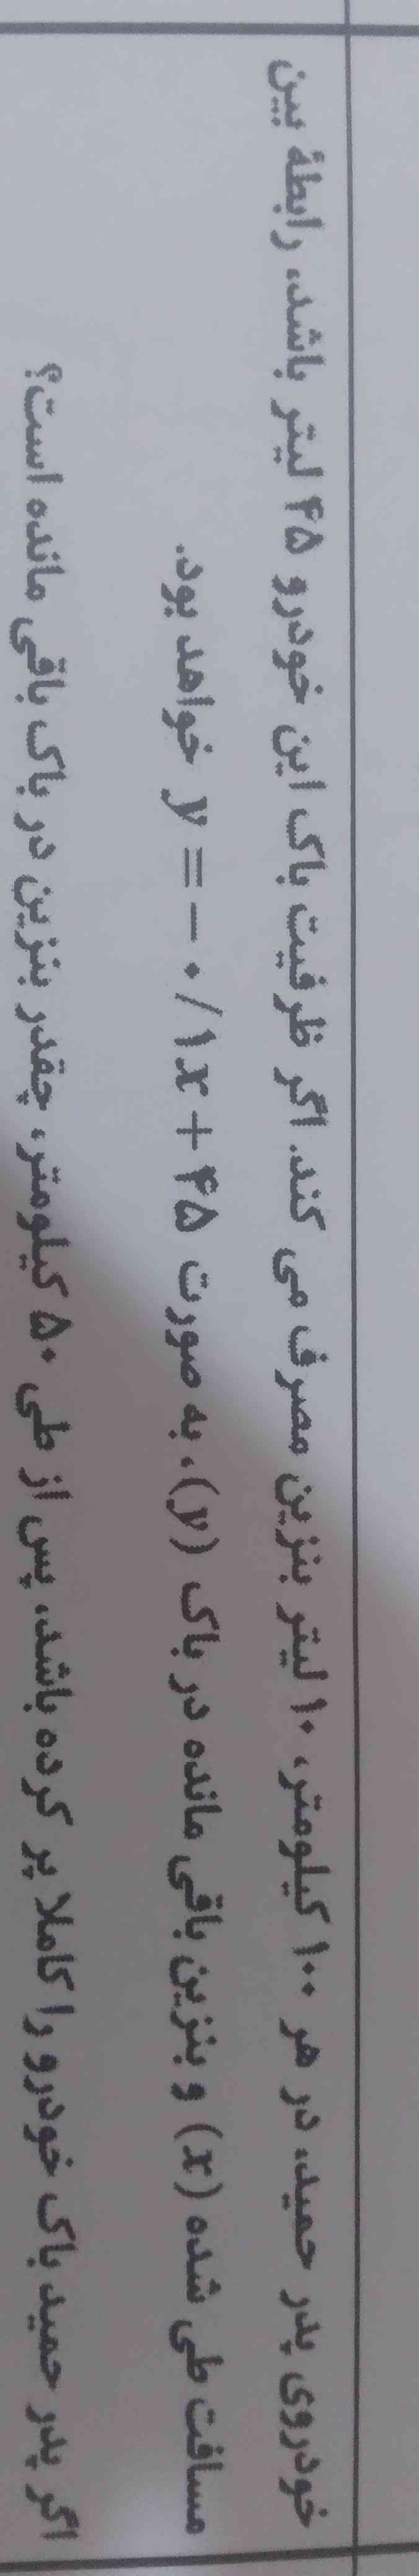 خودروی پدر حمید، در هر ۱۰۰ کیلومتر، ۱۰ لیتر بنزین مصرف می کند. اگر ظرفیت باک این خودرو ۴۵ لیتر باشد، رابطهٔ بین
مسافت طی شده (x) و بنزین باقی مانده در باک (y)، به صورت y = −۰/۱x + ۴۵ خواهد بود.
اگر پدر حمید باک خودرو را کاملا پر کرده باشد، پس از طی ۵۰ کیلومتر، چقدر بنزین در باک باقی مانده است؟